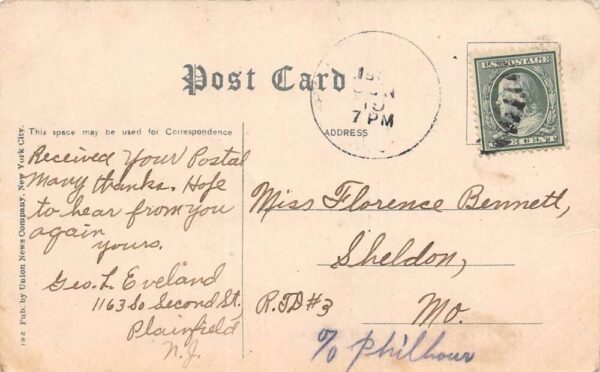 Post Card
U.S. POSTAGE
7 PM
This space may be used for Correspondence
ADDRESS
Received Your Postal
Many thanks. Hope
to hear from you
again
yours.
Geo. L Eveland
1163 So Second St,
Plainfield
N. J.
Miss Florence Bennett,
Sheldon,
R.F.D #3
Mo.
c/o Philhour
192 Pub. by Union News Company, New York City.